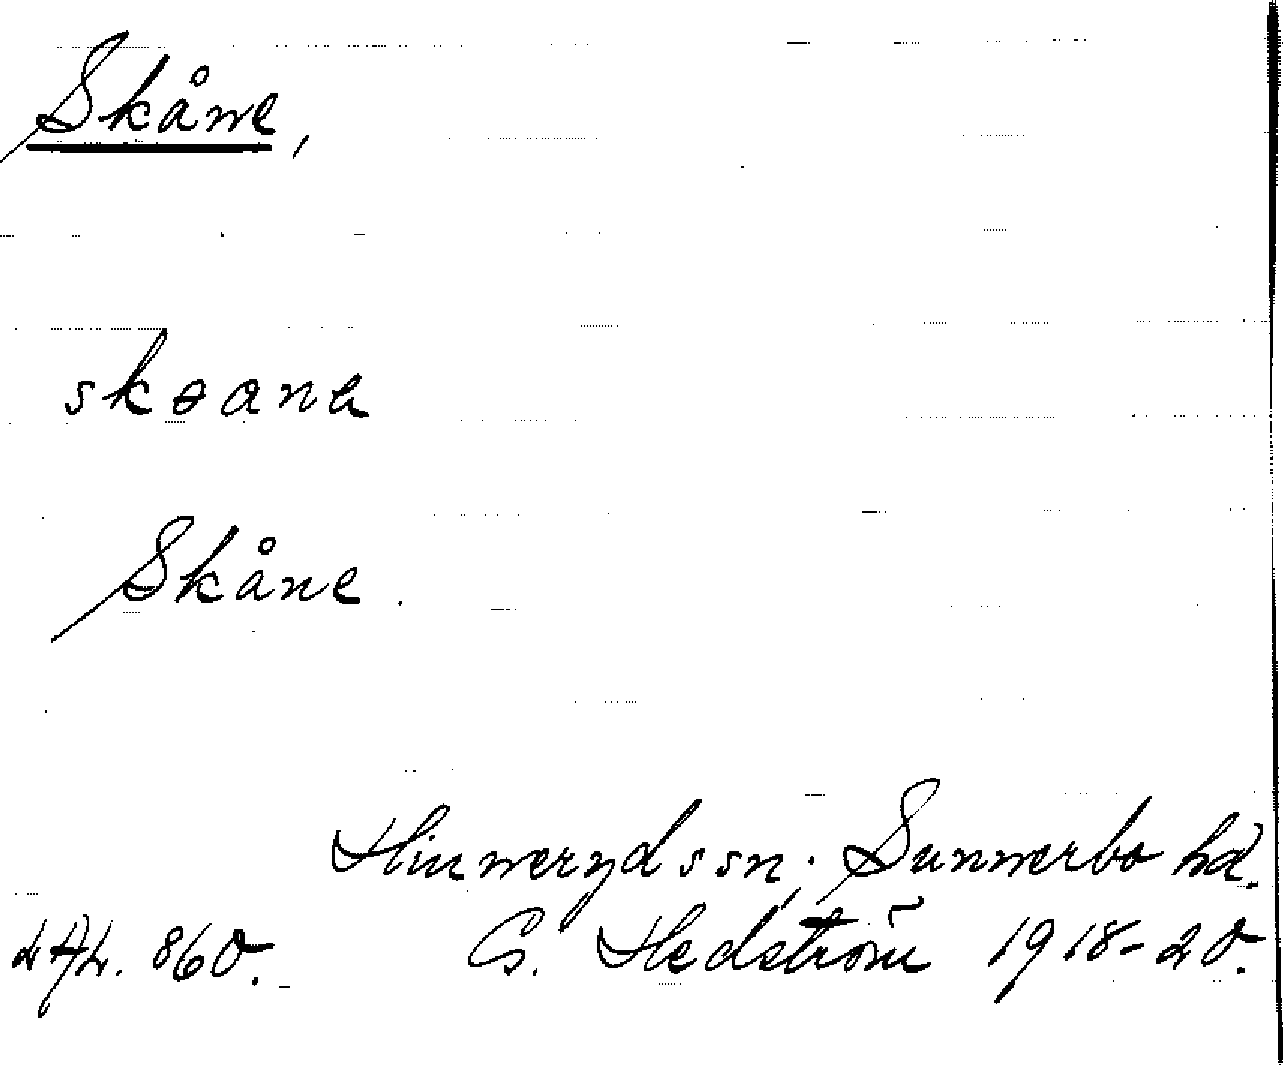 Skåne,
skɵana
Skåne.
Hinneryds sn; Sunnerbo hd.
LAL. 860. G. Hedström 1918-20.